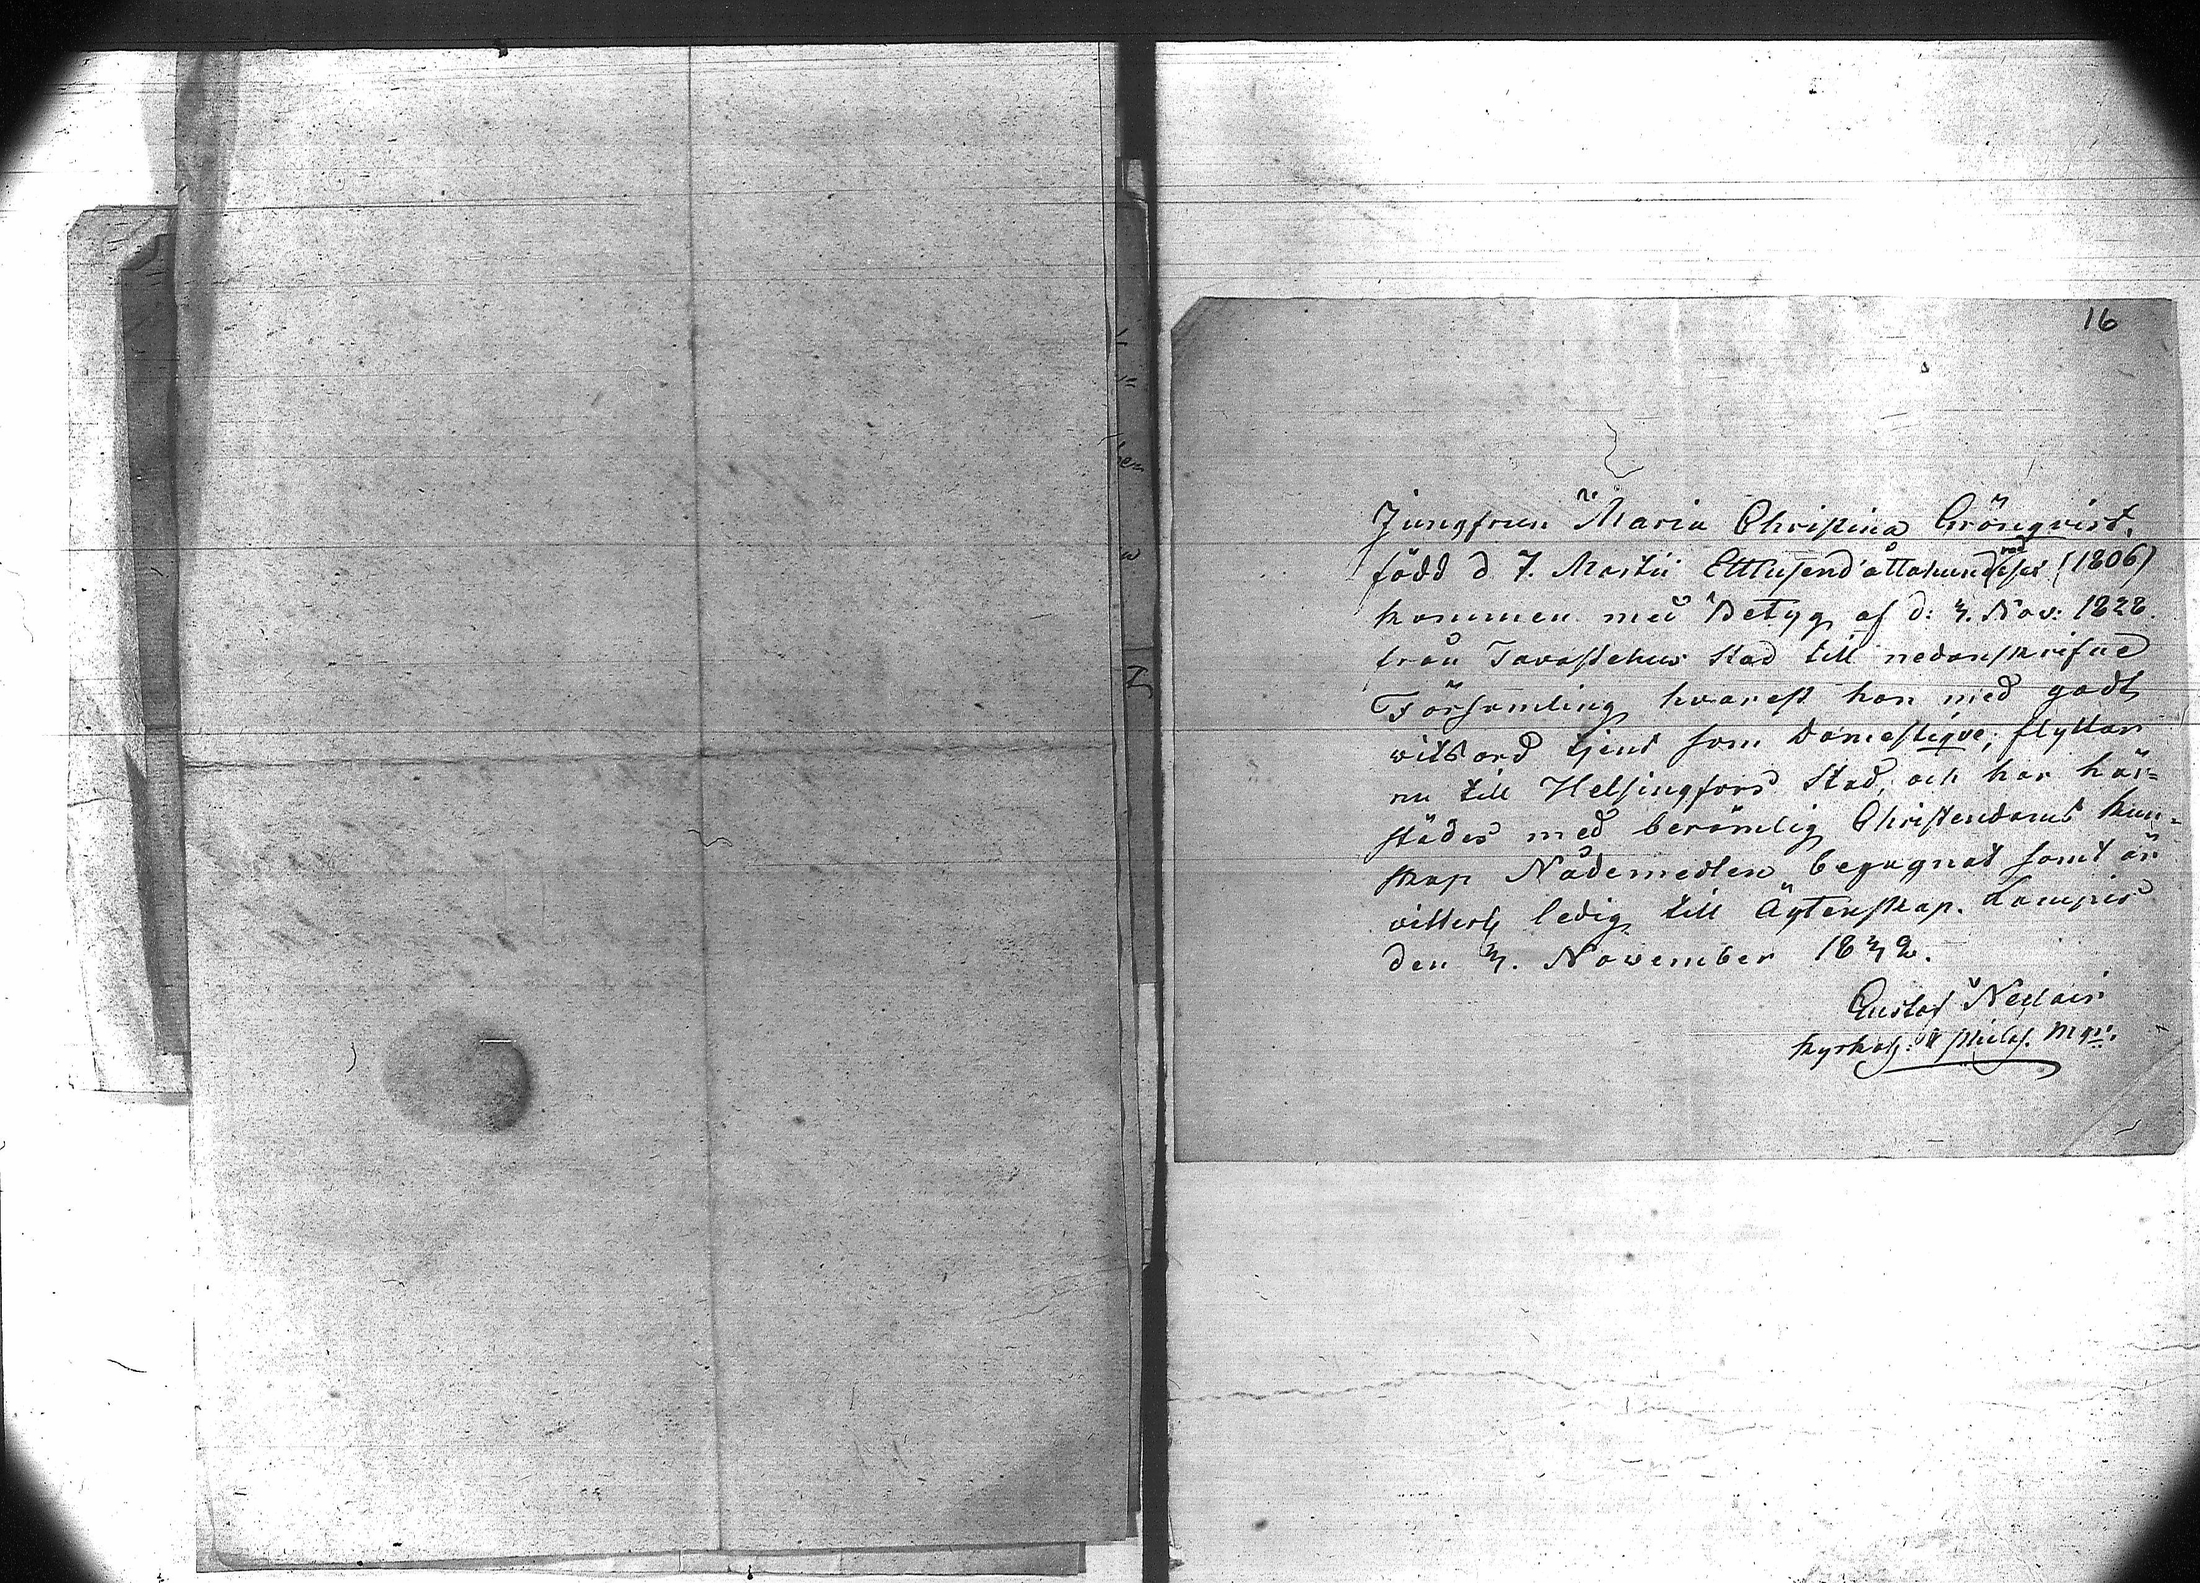 16
Jungfrun Maria Christina Grönqvist,
född d 7. Martii Ettusend åttahundradesex (1806)
kommen med Betyg af d: 3. Nov: 1828.
från Tavastehus stad till nedanskrifne
Församling hvarest hon med godt
vitsord tjent som Domestique, flyttar
nu till Helsingfors Stad, och har här=
städes med berömlig Christendoms kun=
skap Nådemedlen begagnat samt är
vitterl. ledig till Äktenskap. Lampis
den 3. November 1832.
Gustaf
Kyrkoh: philos. Mgr: